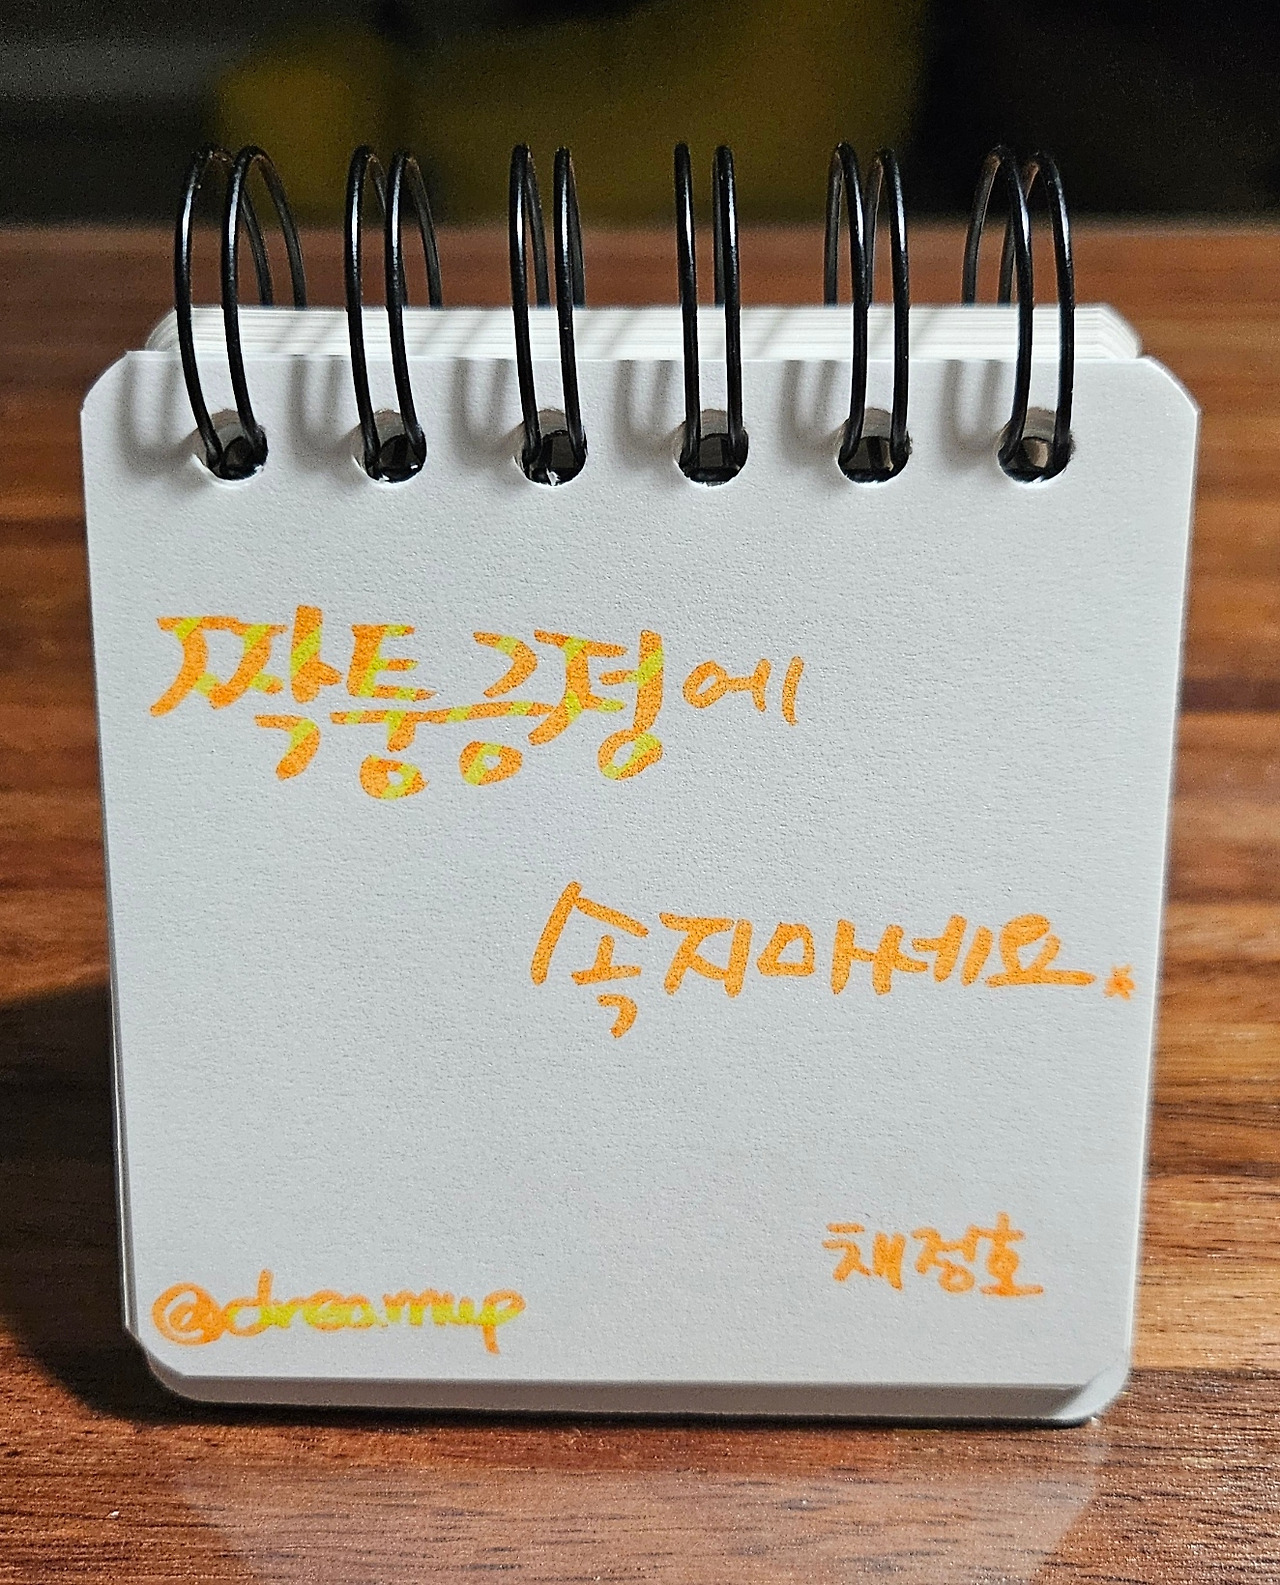 짝퉁긍정에
속지마세요.
채정호
@dreamup